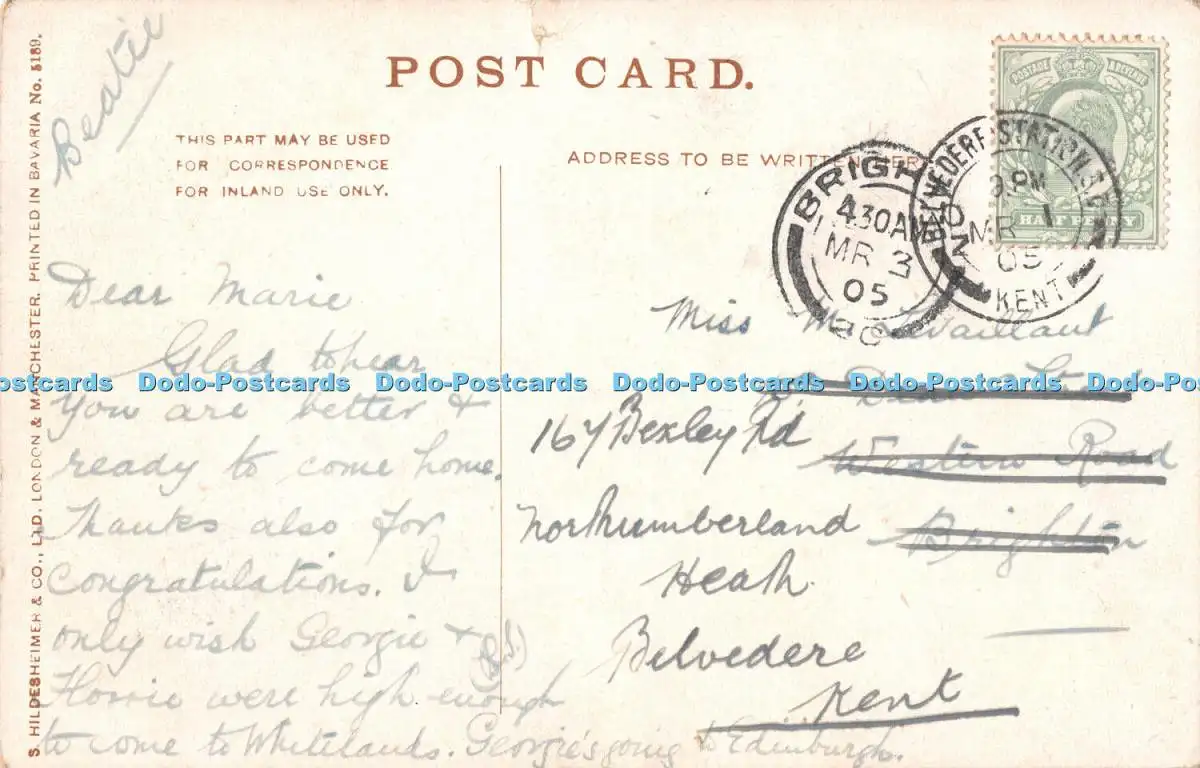 POST CARD.
THIS PART MAY BE USED
FOR CORRESPONDENCE
FOR INLAND USE ONLY.
ADDRESS TO BE WRITTEN HERE
S. HILDESHEIMER & CO., LTD. LONDON & MANCHESTER. PRINTED IN BAVARIA No. 5189.
Beatie
POSTAGE & REVENUE
HALF PENNY
BRIGH
4.30 AM
MR 3
05
BELVEDERE STATION
9. PM
MR 1
05
KENT
Dear Marie
Glad to hear
you are better &
ready to come home.
Thanks also for
congratulations. I
only wish Georgie &
Florrie were high enough
to come to Whitelands. Georgie's going to Edinburgh.
Miss M. Levaillant
Western Road
Brighton
167 Bexley Rd
Northumberland
Heath
Belvedere
Kent
Dodo-Postcards Dodo-Postcards Dodo-Postcards Dodo-Postcards Dodo-Postcards